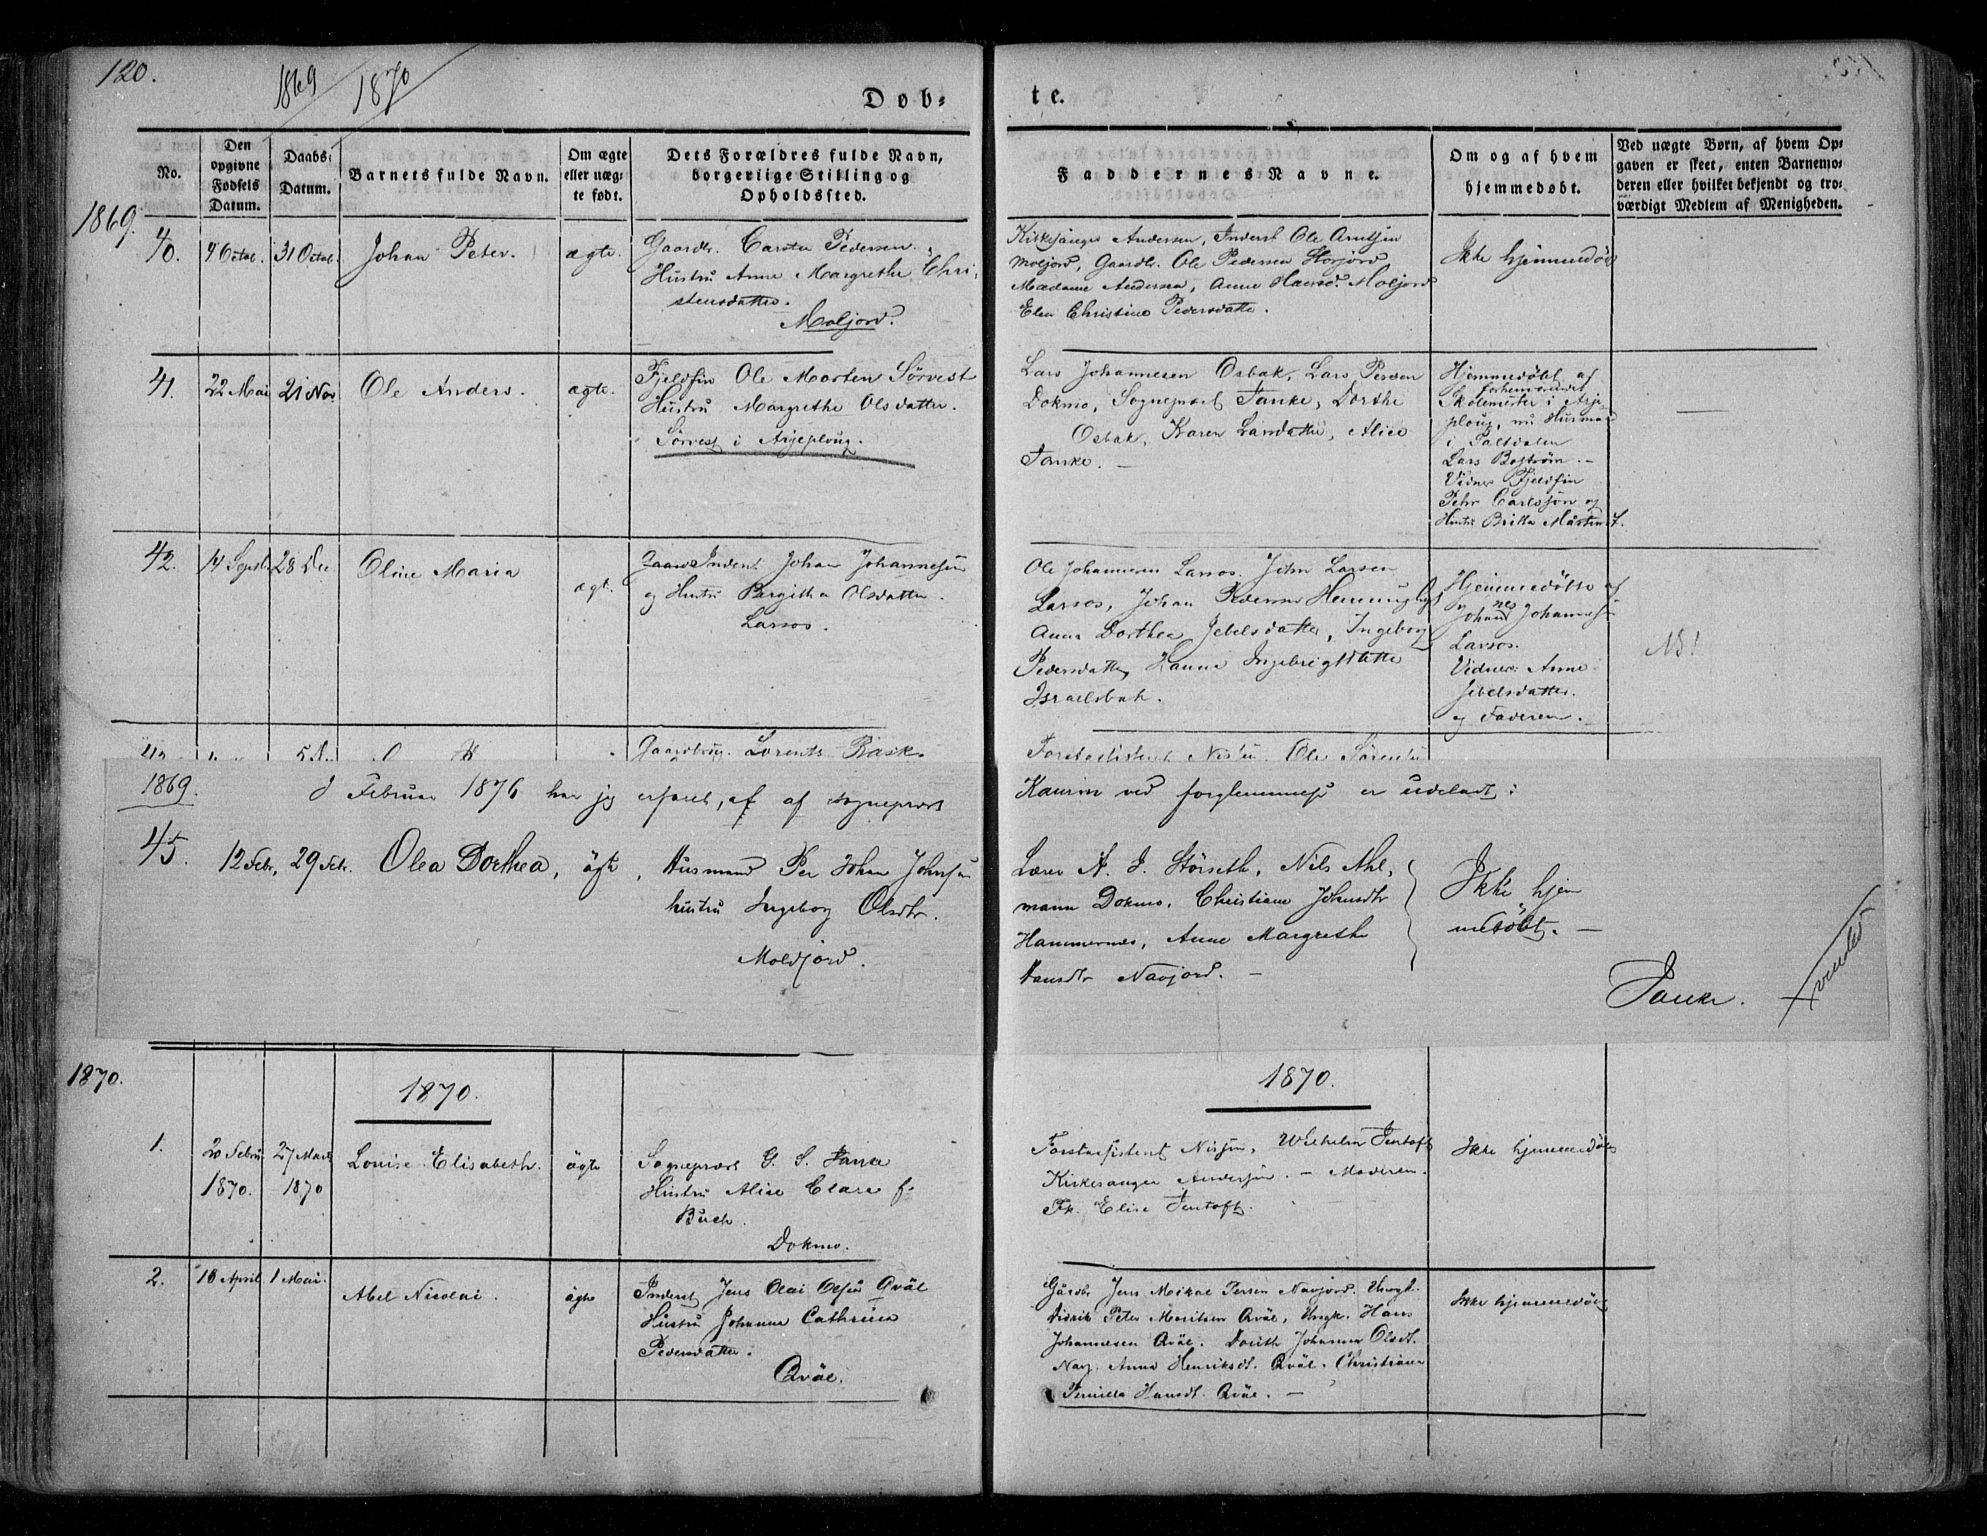 120.
1869 1870
Døb-
te.
No.
Den opgivne Fødsels Datum.
Daabs-Datum.
Barnets fulde Navn.
Om ægte eller uægte født.
Dets Forældres fulde Navn, borgerlige Stilling og Opholdssted.
Faddernes Navne.
Om og af hvem hjemmedøbt.
Ved uægte Børn, af hvem Opgaven er skeet, enten Barnemoderen eller hvilket bekjendt og troværdigt Medlem af Menigheden.
1869.
40. 4 Octob. 31 Octob. Johan Peter. ægte.
Gaardbr. Carsten Pedersen.
Hustru Anne Margrethe Chri-
stensdatter.
Moljord.
Kirkesanger Andersen, Inderst Ole Arntsen
Moljord, Gaardbr. Ole Pedersen
Madame Andersen, Anne Hansd. Moljord
Elen Christine Pedersdatter.
Ikke hjemmedøbt
41. 22 Mai 21 Nov Ole Anders. ægte.
Fjeldfin Ole Morten Sørvest
Hustru Margrethe Olsdatter.
Sørvest i Arjeploug.
Lars Johannesen Osbak, Lars Persen
Dokmo, Sogneprest Tanke, Dorthe
Osbak, Karen Larsdatter, Alice
Tanke. —
Hjemmedøbt af
forhenværende
Skolemester i Arje-
ploug, nu Husmand
i Saltdalen
Lars Boström. —
Vidner Fjeldfin
Pehr Carlsson og
Hustru Britta Mårtensd.
—
42. 14 Septb 28 Dec Oline Maria ægt.
Inderst Johan Johannesen
og Hustru Bergitha Olsdatter.
Larsos.
Ole Johannesen Larsos. John Larsen
Larsos, Johan Pedersen
Anne Dorthea Jebelsdatter, Ingeborg
Pedersdatter, Hanna Ingebrigtsdatter
Israelsbak.
Hjemmedøbte af
Johannes Johannesen
Larsos.
Vidner: Anne
Jebelsdatter.
og Faderen. —
NB!
Gaardbrug. Lorents Rask.
Forstassistent Nissen. Ole Sørensen
1869.
I Februar 1876 har jeg erfaret, at af Sogneprest
Kaurin ved forglemmelse er udeladt:
45. 12 Febr, 29 Febr. Olea Dorthea, ägte,
Husmand Per Johan Johnsen
hustru Ingeborg Olsdtr.
Moldjord.
Lærer A. J. Störseth, Nils Ahl-
mann Dokmo, Christiane Johnsdtr
Hammernes, Anne Margrethe
Hansdtr Navjord. —
Ikke hjem
medøbt. —
Tanke.
1870.
1870.
1870.
1. 20 Febru 1870. 27 Marts 1870 Louise Elisabeth. ägte
Sogneprest G. S. Tanke
Hustru Alise Clara f.
Buch.
Dokmo.
Forstassistent Nissen, Wilhelm Jentoft
Kirkesanger Andersen. — Moderen.
Frk. Elise Jentoft.
Ikke hjemmedøbt
2. 10 April 1 Mai. Abel Nicolai. ägte
Inderst Jens Olai Olsen Qväl
Hustru Johanna Cathrina
Pedersdatter.
Qväl.
Gårdbr Jens Mikal Persen Navjord. Ungk.
Didrik Peter Moritsen Qväl, Ungk. Hans
Johannesen Qväl. Dorith Johanna Olsdt.
Navj. Anna Henriksdt. Qväl. Christiane
Pernilla Hansdt. Qväl. —
Ikke hjemmedøbt